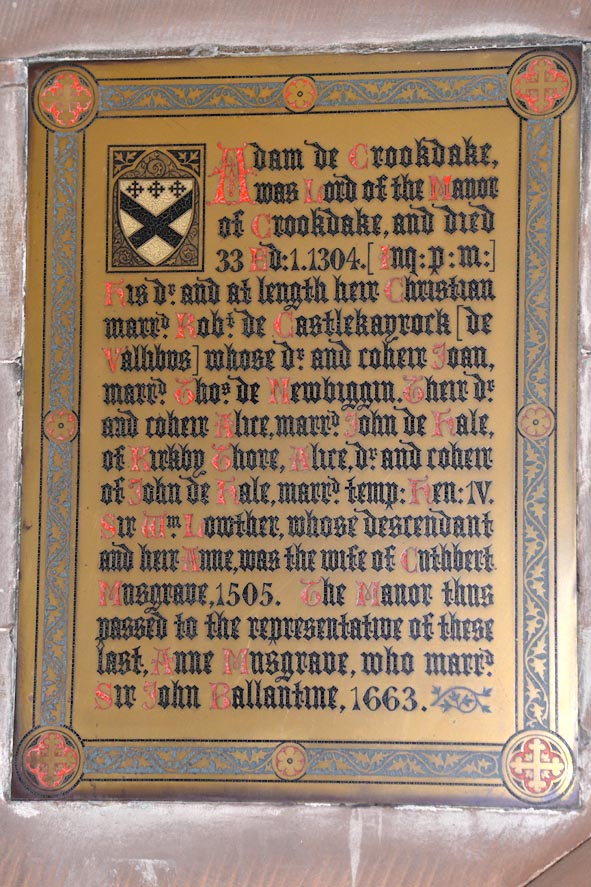 Adam de Crookdake,
was Lord of the Manor
of Crookdake, and died
33 Ed: 1. 1304. [Inq: p: m:]
His dr. and at length heir Christian
marrd. Robt. de Castlekayrock [de
Vallibus] whose dr. and coheir Joan,
marrd. Thos. de Newbiggin. Their dr.
and coheir Alice, marrd. John de Hale,
of Kirkby Thore, Alice, dr. and coheir
of John de Hale, marrd. temp: Hen: IV.
Sir Wm. Lowther, whose descendant
and heir Anne, was the wife of Cuthbert
Musgrave, 1505. The Manor thus
passed to the representative of these
last, Anne Musgrave, who marrd.
Sir John Ballantine, 1663.